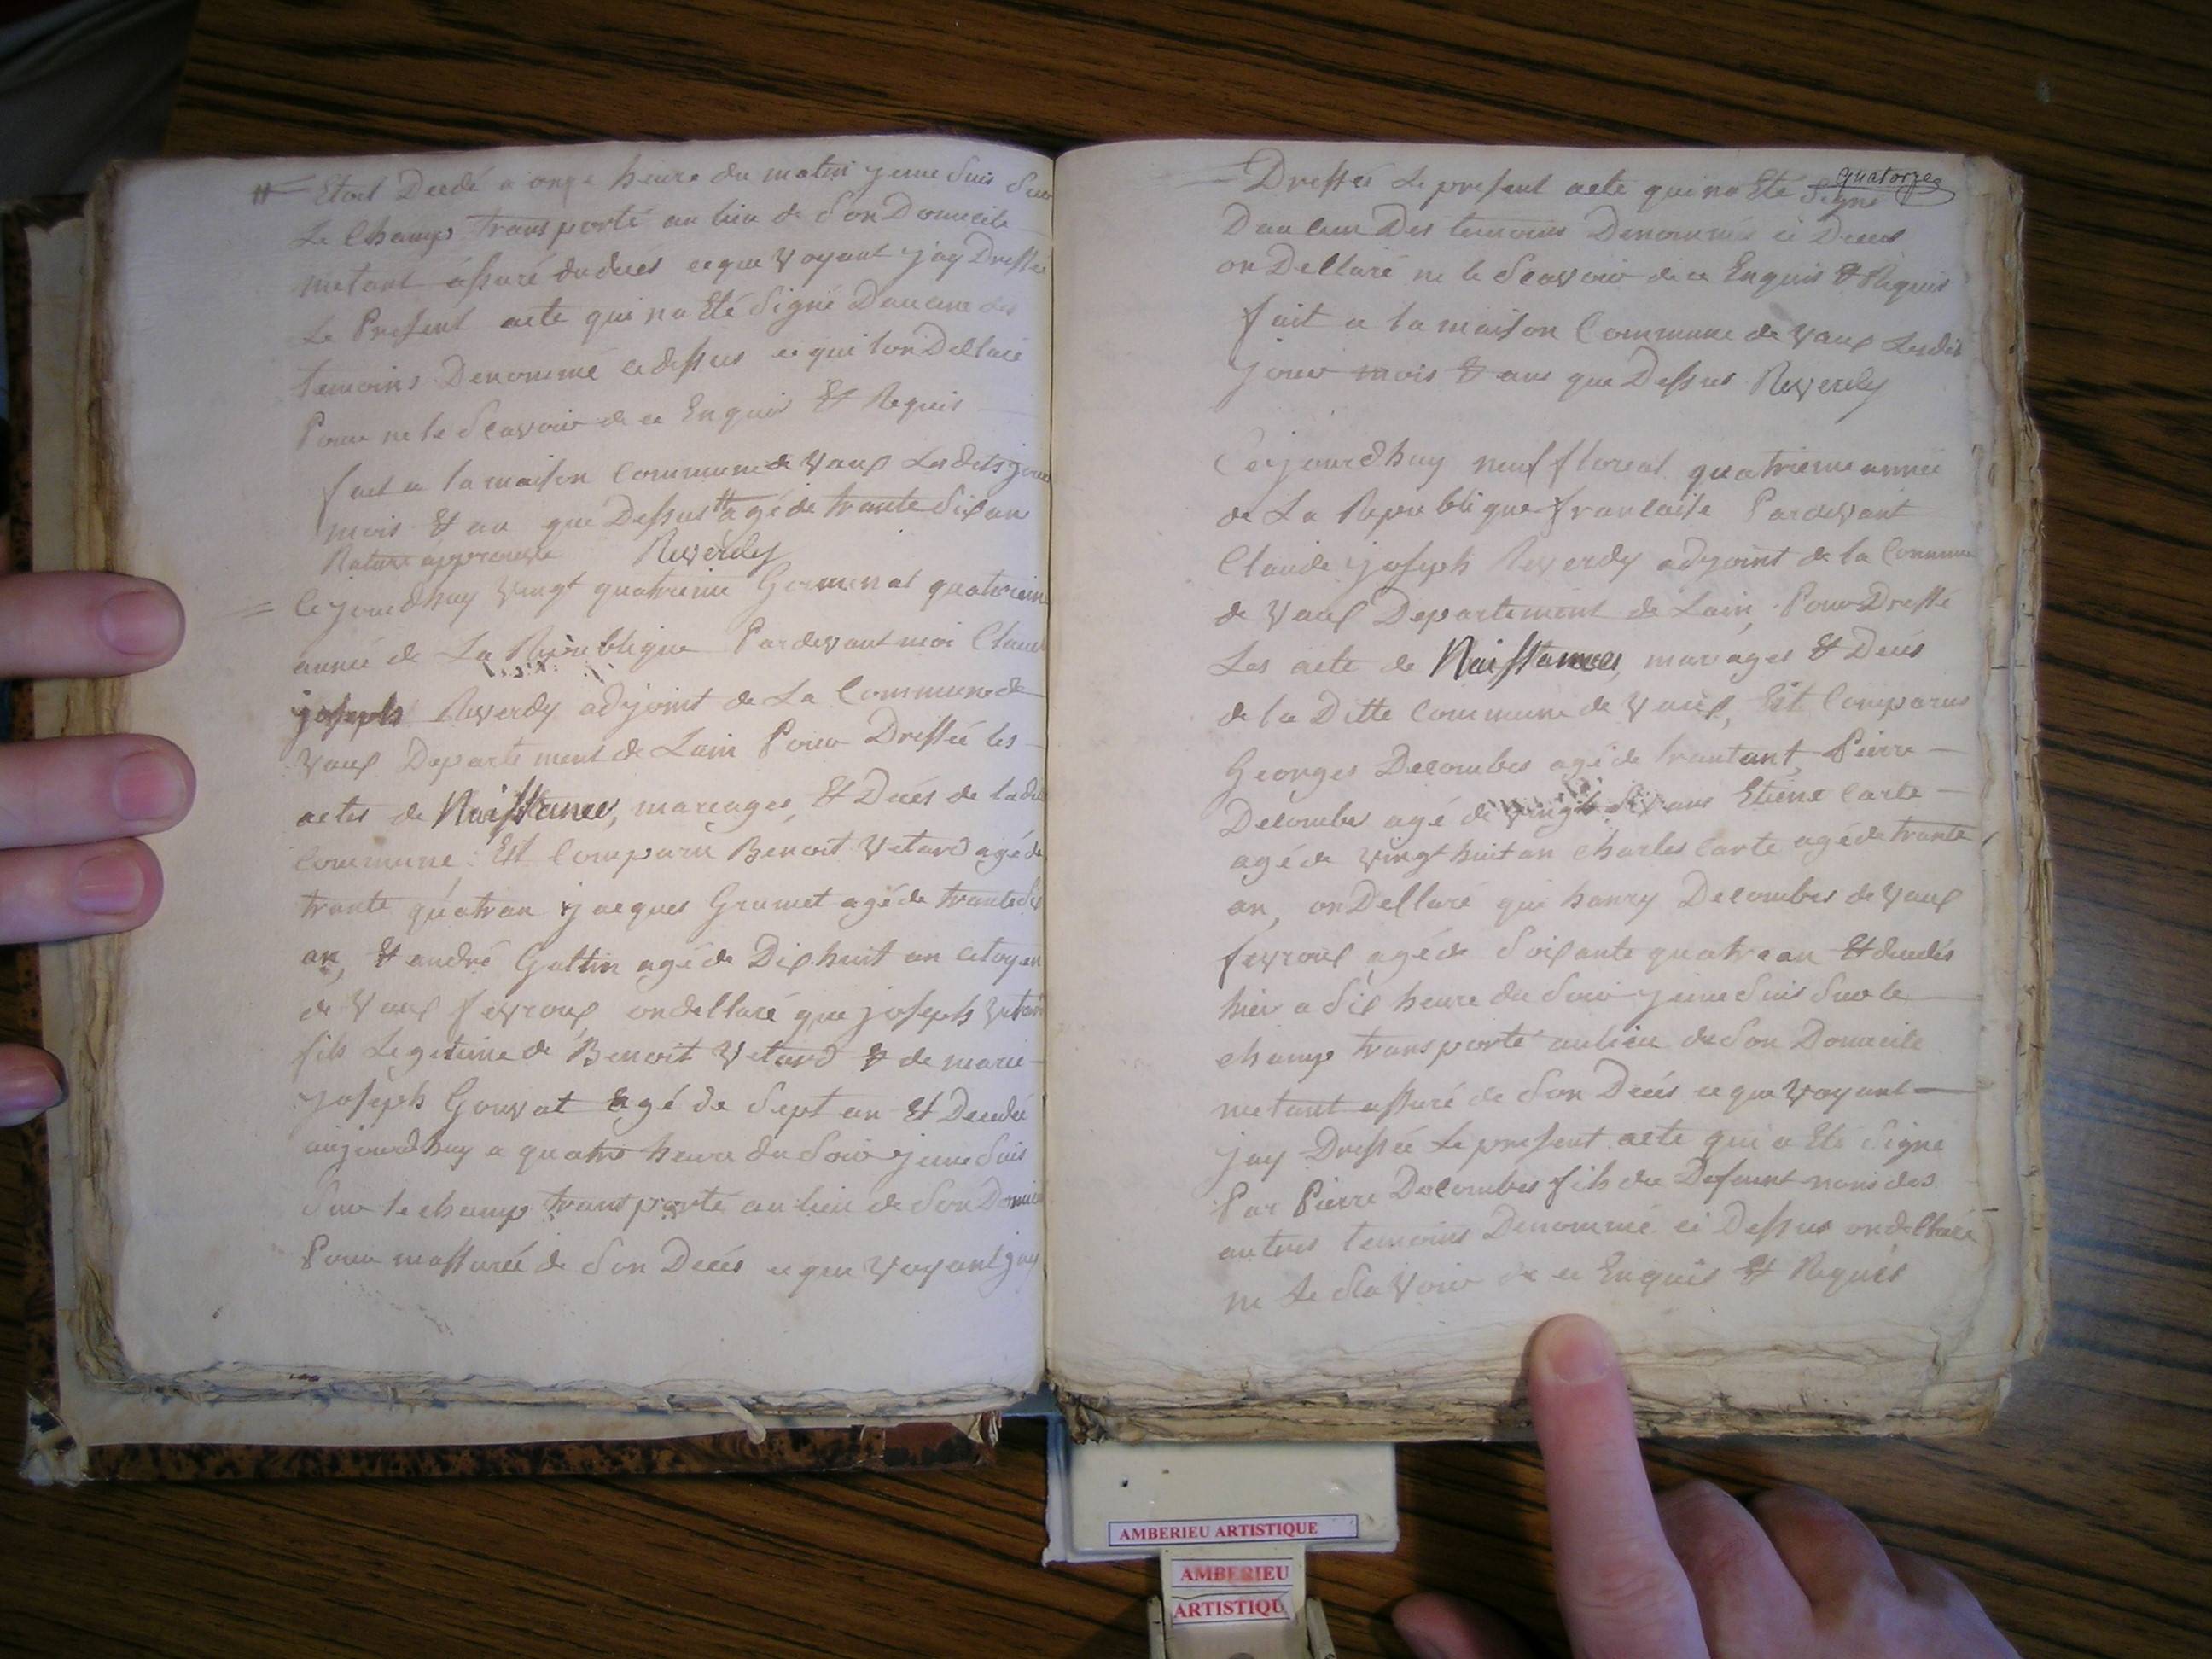 Etoit Decdé a onze heure du matin je me suis sur
Le Champ transporté au lieu de Son Domicile
metant assuré du deces ce que Voyant jay Dressé
Le Present acte qui na Eté Signé Daucun des
temoins Denommé cidessus ce qui lon Dellaré
Pour ne le Scavoir de ce Enquis & Requis
fait a la maison Commune de Vaux Lesdits jour
mois & an que Dessus # agé de trante Six an
Rature approuvée Reverdy
Cejourdhuy Vingt quatrieme Germinal quatrieme
année de La Republique Pardevant moi Claude
joseph Reverdy adjoint de La Commune de
Vaux Departement de Lain Pour Dressée les
actes de Naissance, mareages, & Decés de ladite
Commune. Est Comparu Benoit Vetard agé de
trante quatr an jacques Grumet agé de trante Six
an, & andré Guttin agé de Dix huit an Citoyen
de Vaux fevroux on dellaré que joseph Vetard
fils Legetime de Benoit Vetard & de marie
joseph Gouvat agé de Sept an Et Decedée
aujourdhuy a quatre heure du Soir je me Suis
Sur le champ transporté au lieu de Son Domicile
Pour massurée de Son Decés ce que Voyant jay
quatorze
Dressés Le present acte qui na Eté Signé
Daucun Des temoins Denommé ci Dessus
on Dellaré ne le Scavoir de ce Enquis & Requis
fait a la maison Commune de Vaux Lesdit
jour mois & ans que Dessus Reverdy
Cejourdhuy neuf floreal quatrieme année
de La Republique francaise Pardevant
Claude joseph Reverdy adjoint de la Commune
de Vaux Departement de Lain, Pour Dressé
Les acte de Naissances, mariages & Decés
de la Ditte Commune de Vaux, Est Comparus
Georges Decombes agé de trantant, Pierre
Decombes agé de vingt Six ans Etiene Carte
agé de vingt huit an Charles Carte agé de trante
an, on Dellaré que hanry Decombes de Vaux
fevroux agé de Soixante quatre an Et decedés
hier a Six heure du Soir je me Suis Sur le
champ transporté au lieu de Son Domicile
metant assuré de Son Decés ce que Voyant
jay Dressée Le present acte qui a Eté Signe
Par Pierre Decombes fils du Defunt nons des
autres temoins Denommé ci Dessus on dellaré
ne Le Scavoir de ce Enquis & Requis
AMBERIEU ARTISTIQUE
AMBERIEU
ARTISTIQU